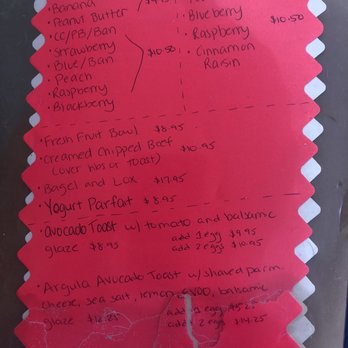 · Banana
· Peanut Butter
· CC/PB/Ban
· Strawberry $10.50
· Blue/Ban
· Peach
· Raspberry
· Blackberry
· Blueberry $10.50
· Raspberry
· Cinnamon
Raisin
· Fresh Fruit Bowl $8.95
· Creamed Chipped Beef $10.95
(over hbs or toast)
· Bagel and Lox $17.95
· Yogurt Parfait $8.95
· avocado Toast w/ tomato and balsamic
glaze $8.95 add 1 egg $9.95
add 2 eggs $10.95
· Argula Avocado Toast w/ shaved parm
cheese, sea salt, lemon, EVOO, balsamic
glaze add 1 egg
add 2 eggs $14.25